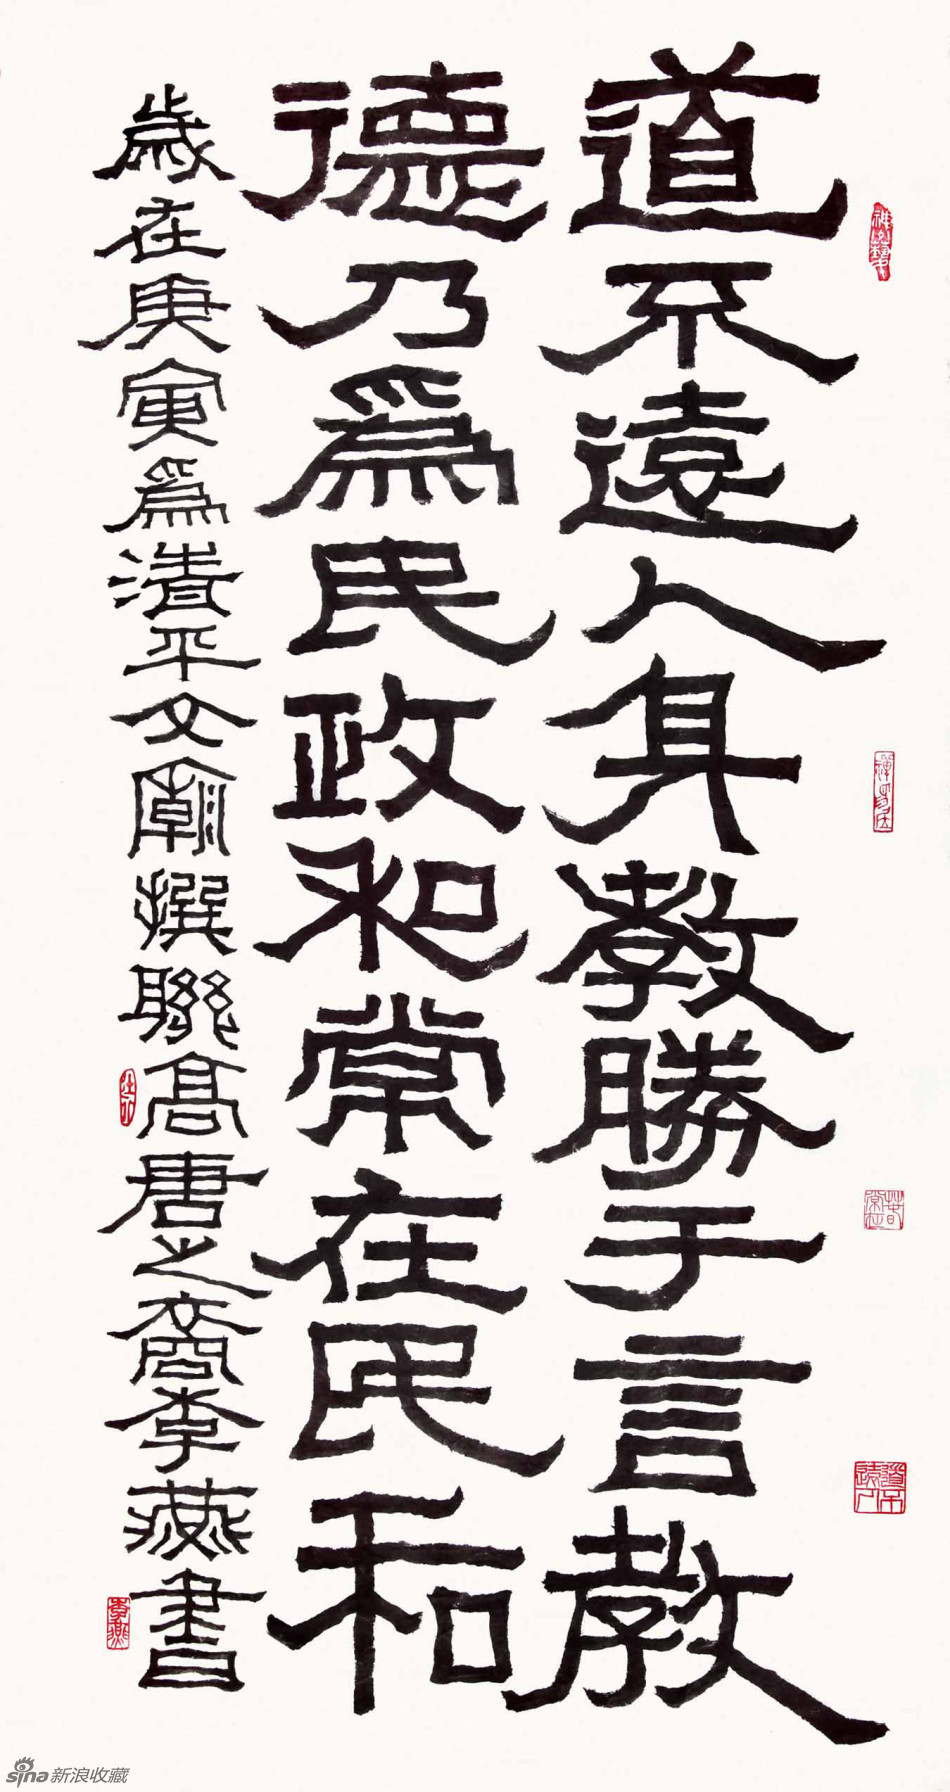 道不遠人身教勝于言教
德乃爲民政和常在民和
歲在庚寅爲清平文廟撰聯高唐之裔李燕書
道不遠人
李燕
sina新浪收藏